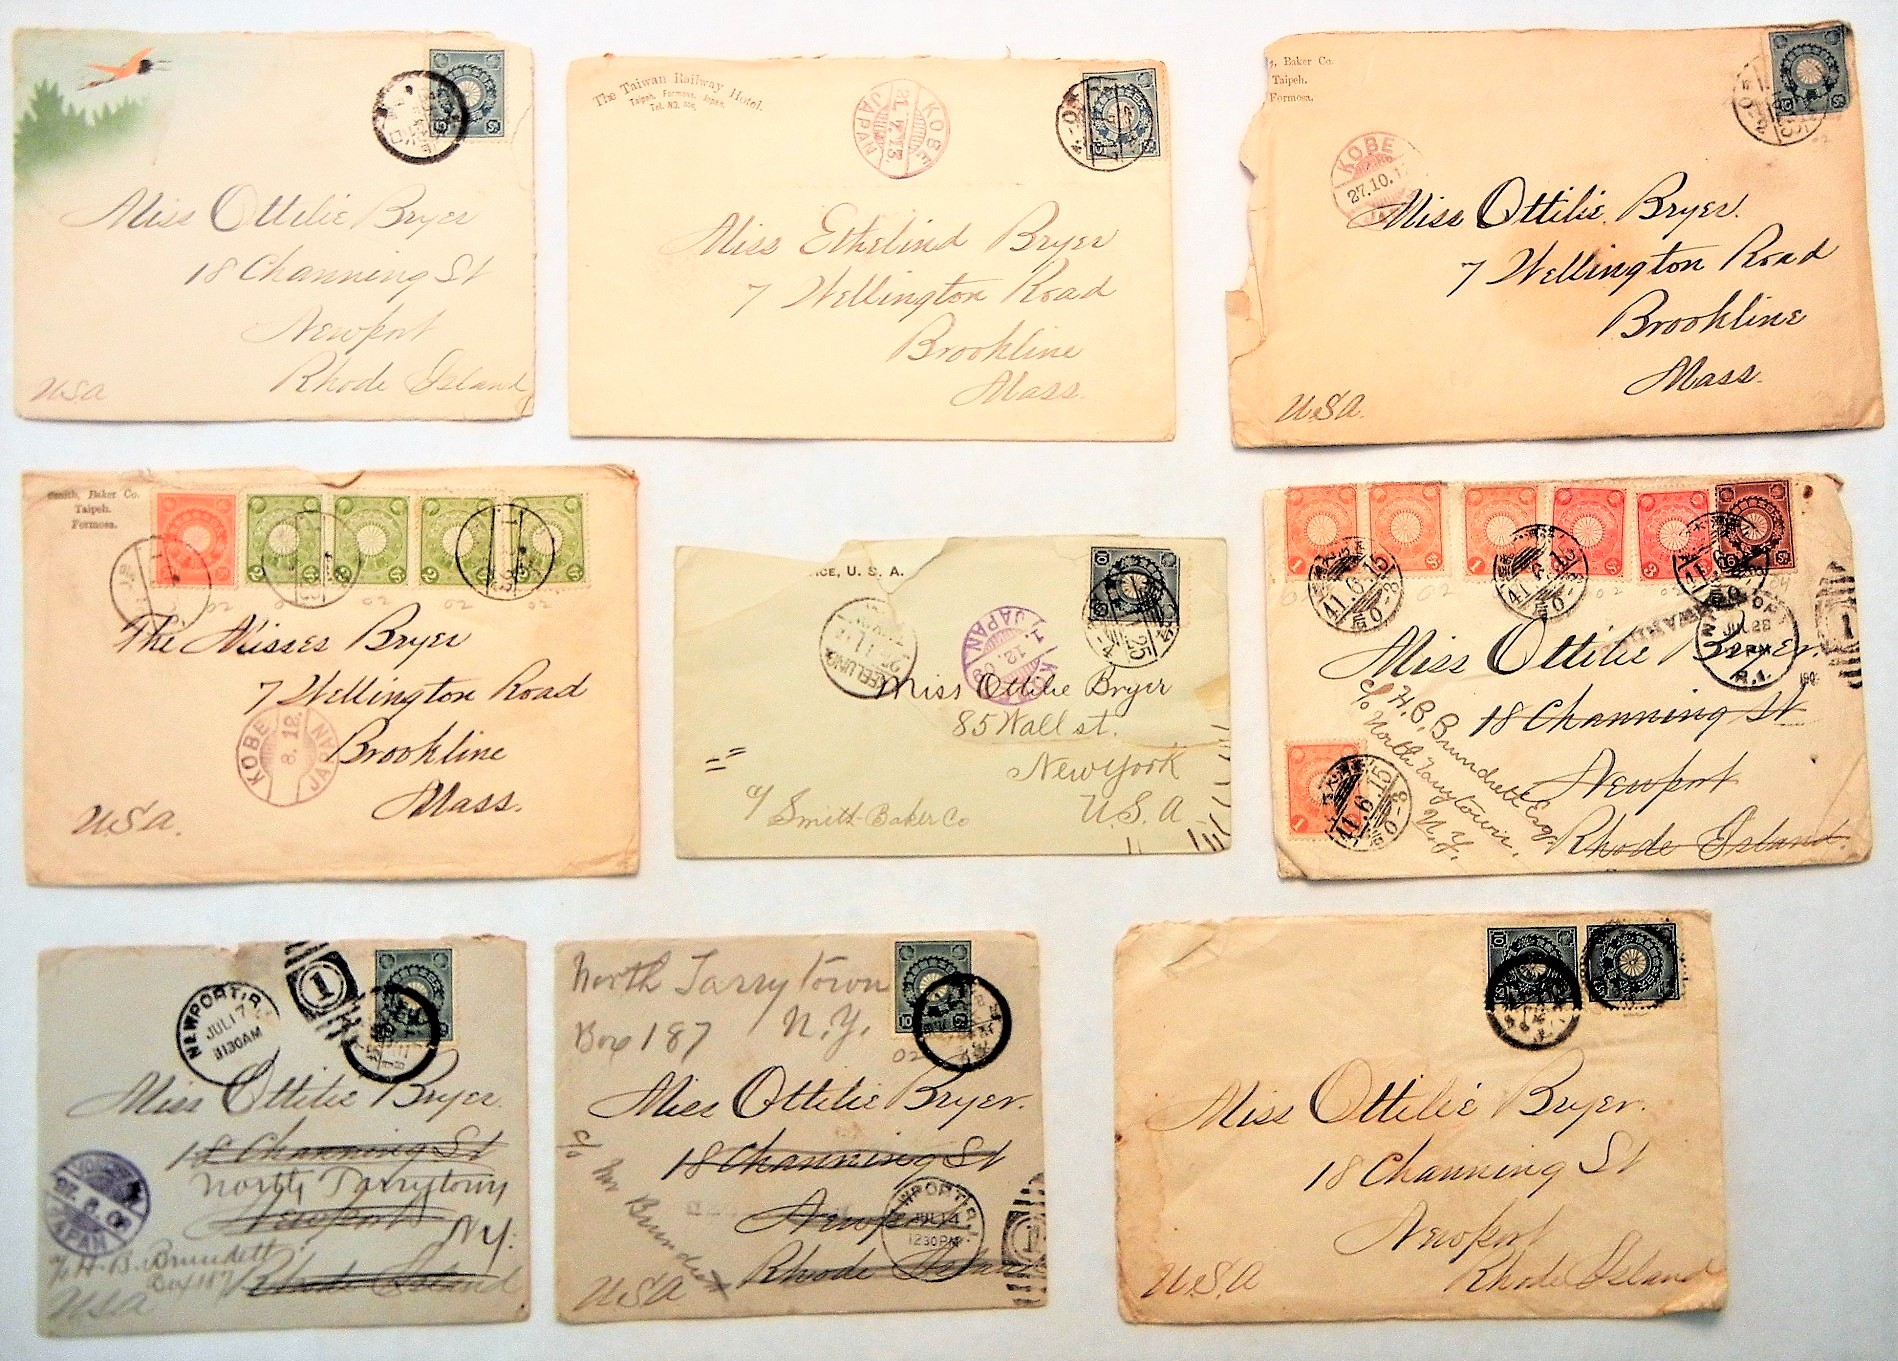 Miss Ottilie Bryer
18 Channing St
Newport
Rhode Island
USA
The Taiwan Railway Hotel.
Taipeh, Formosa, Japan.
KOBE
21.7.13.
JAPAN
Miss Ethelind Bryer
7 Wellington Road
Brookline
Mass.
Baker Co.
Taipeh.
Formosa.
KOBE
27.10.1
Miss Ottilie Bryer.
7 Wellington Road
Brookline
Mass.
USA.
Smith, Baker Co.
Taipeh.
Formosa.
The Misses Bryer
7 Wellington Road
KOBE
8.12.
JAPAN
Brookline
Mass.
USA.
ICE, U. S. A.
KEELUNG
JAPAN
Miss Ottilie Bryer
85 Wall st.
New York
U. S. A
c/ Smith Baker Co
41.6.15
0-8
41.6.15
0-8
JUL 28
R.I.
1
Miss Ottilie Bryer.
c/o H. B. Brundrett Esq.
North Tarrytown,
N.Y.
18 Channing St
Newport
Rhode Island.
41.6.15
0-8
NEWPORT, R.I.
JUL 17
1130AM
1
Miss Ottilie Bryer.
18 Channing St
North Tarrytown
Newport
N.Y.
JAPAN
c/o H. B. Brundett
Box 187
Rhode Island
USA
North Tarrytown
Box 187 N.Y.
02
Miss Ottilie Bryer.
18 Channing St
c/o Mr
Newport
NEWPORT, R.I.
JUL 14
1230PM
1
Rhode Island
USA
Miss Ottilie Bryer.
18 Channing St
Newport
Rhode Island
USA